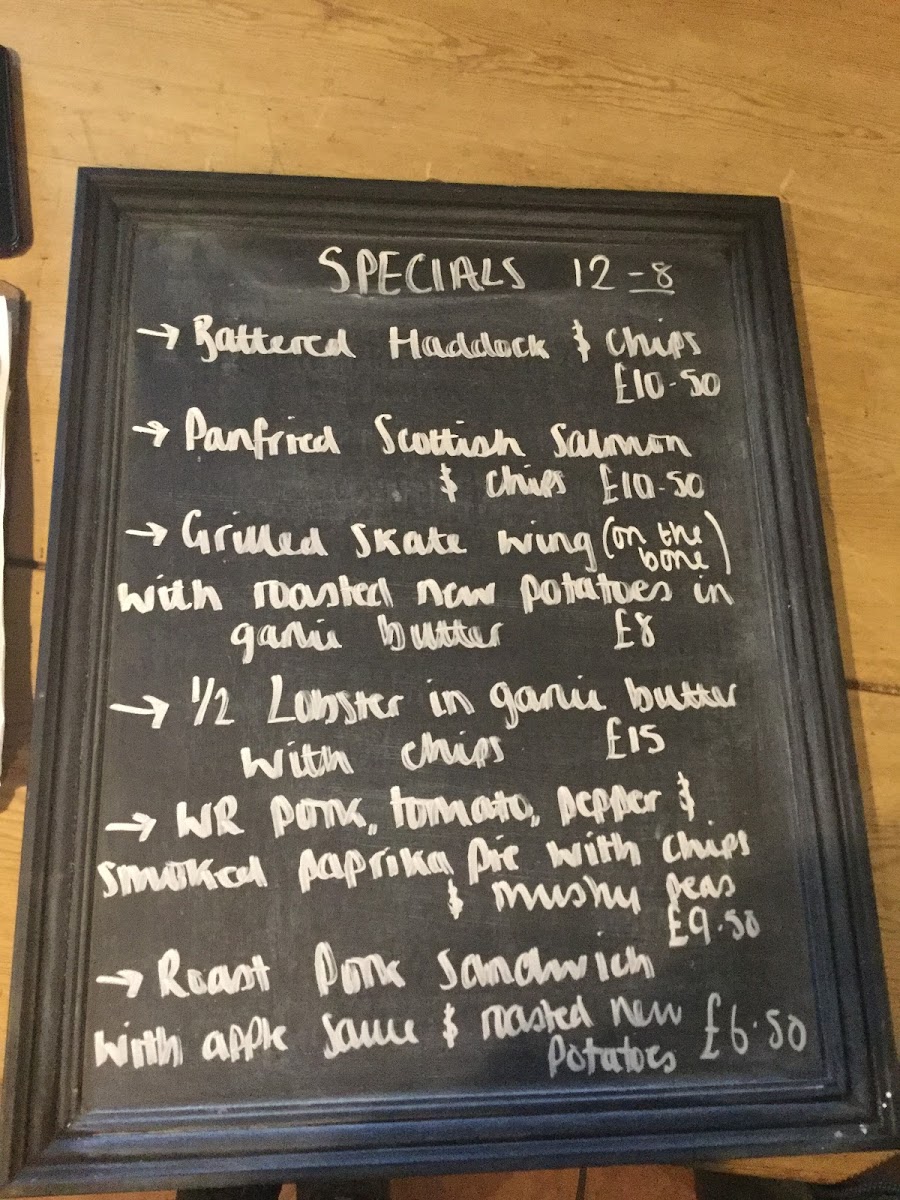 SPECIALS 12-8
→ Battered Haddock & chips
£10.50
→ Panfried Scottish Salmon
& chips £10.50
→ Grilled Skate wing (on the bone)
with roasted new potatoes in
garlic butter £8
→ 1/2 Lobster in garlic butter
with chips £15
→ WR pork, tomato, pepper &
smoked paprika pie with chips
& mushy peas
£9.50
→ Roast Pork Sandwich
with apple sauce & roasted new
potatoes £6.50